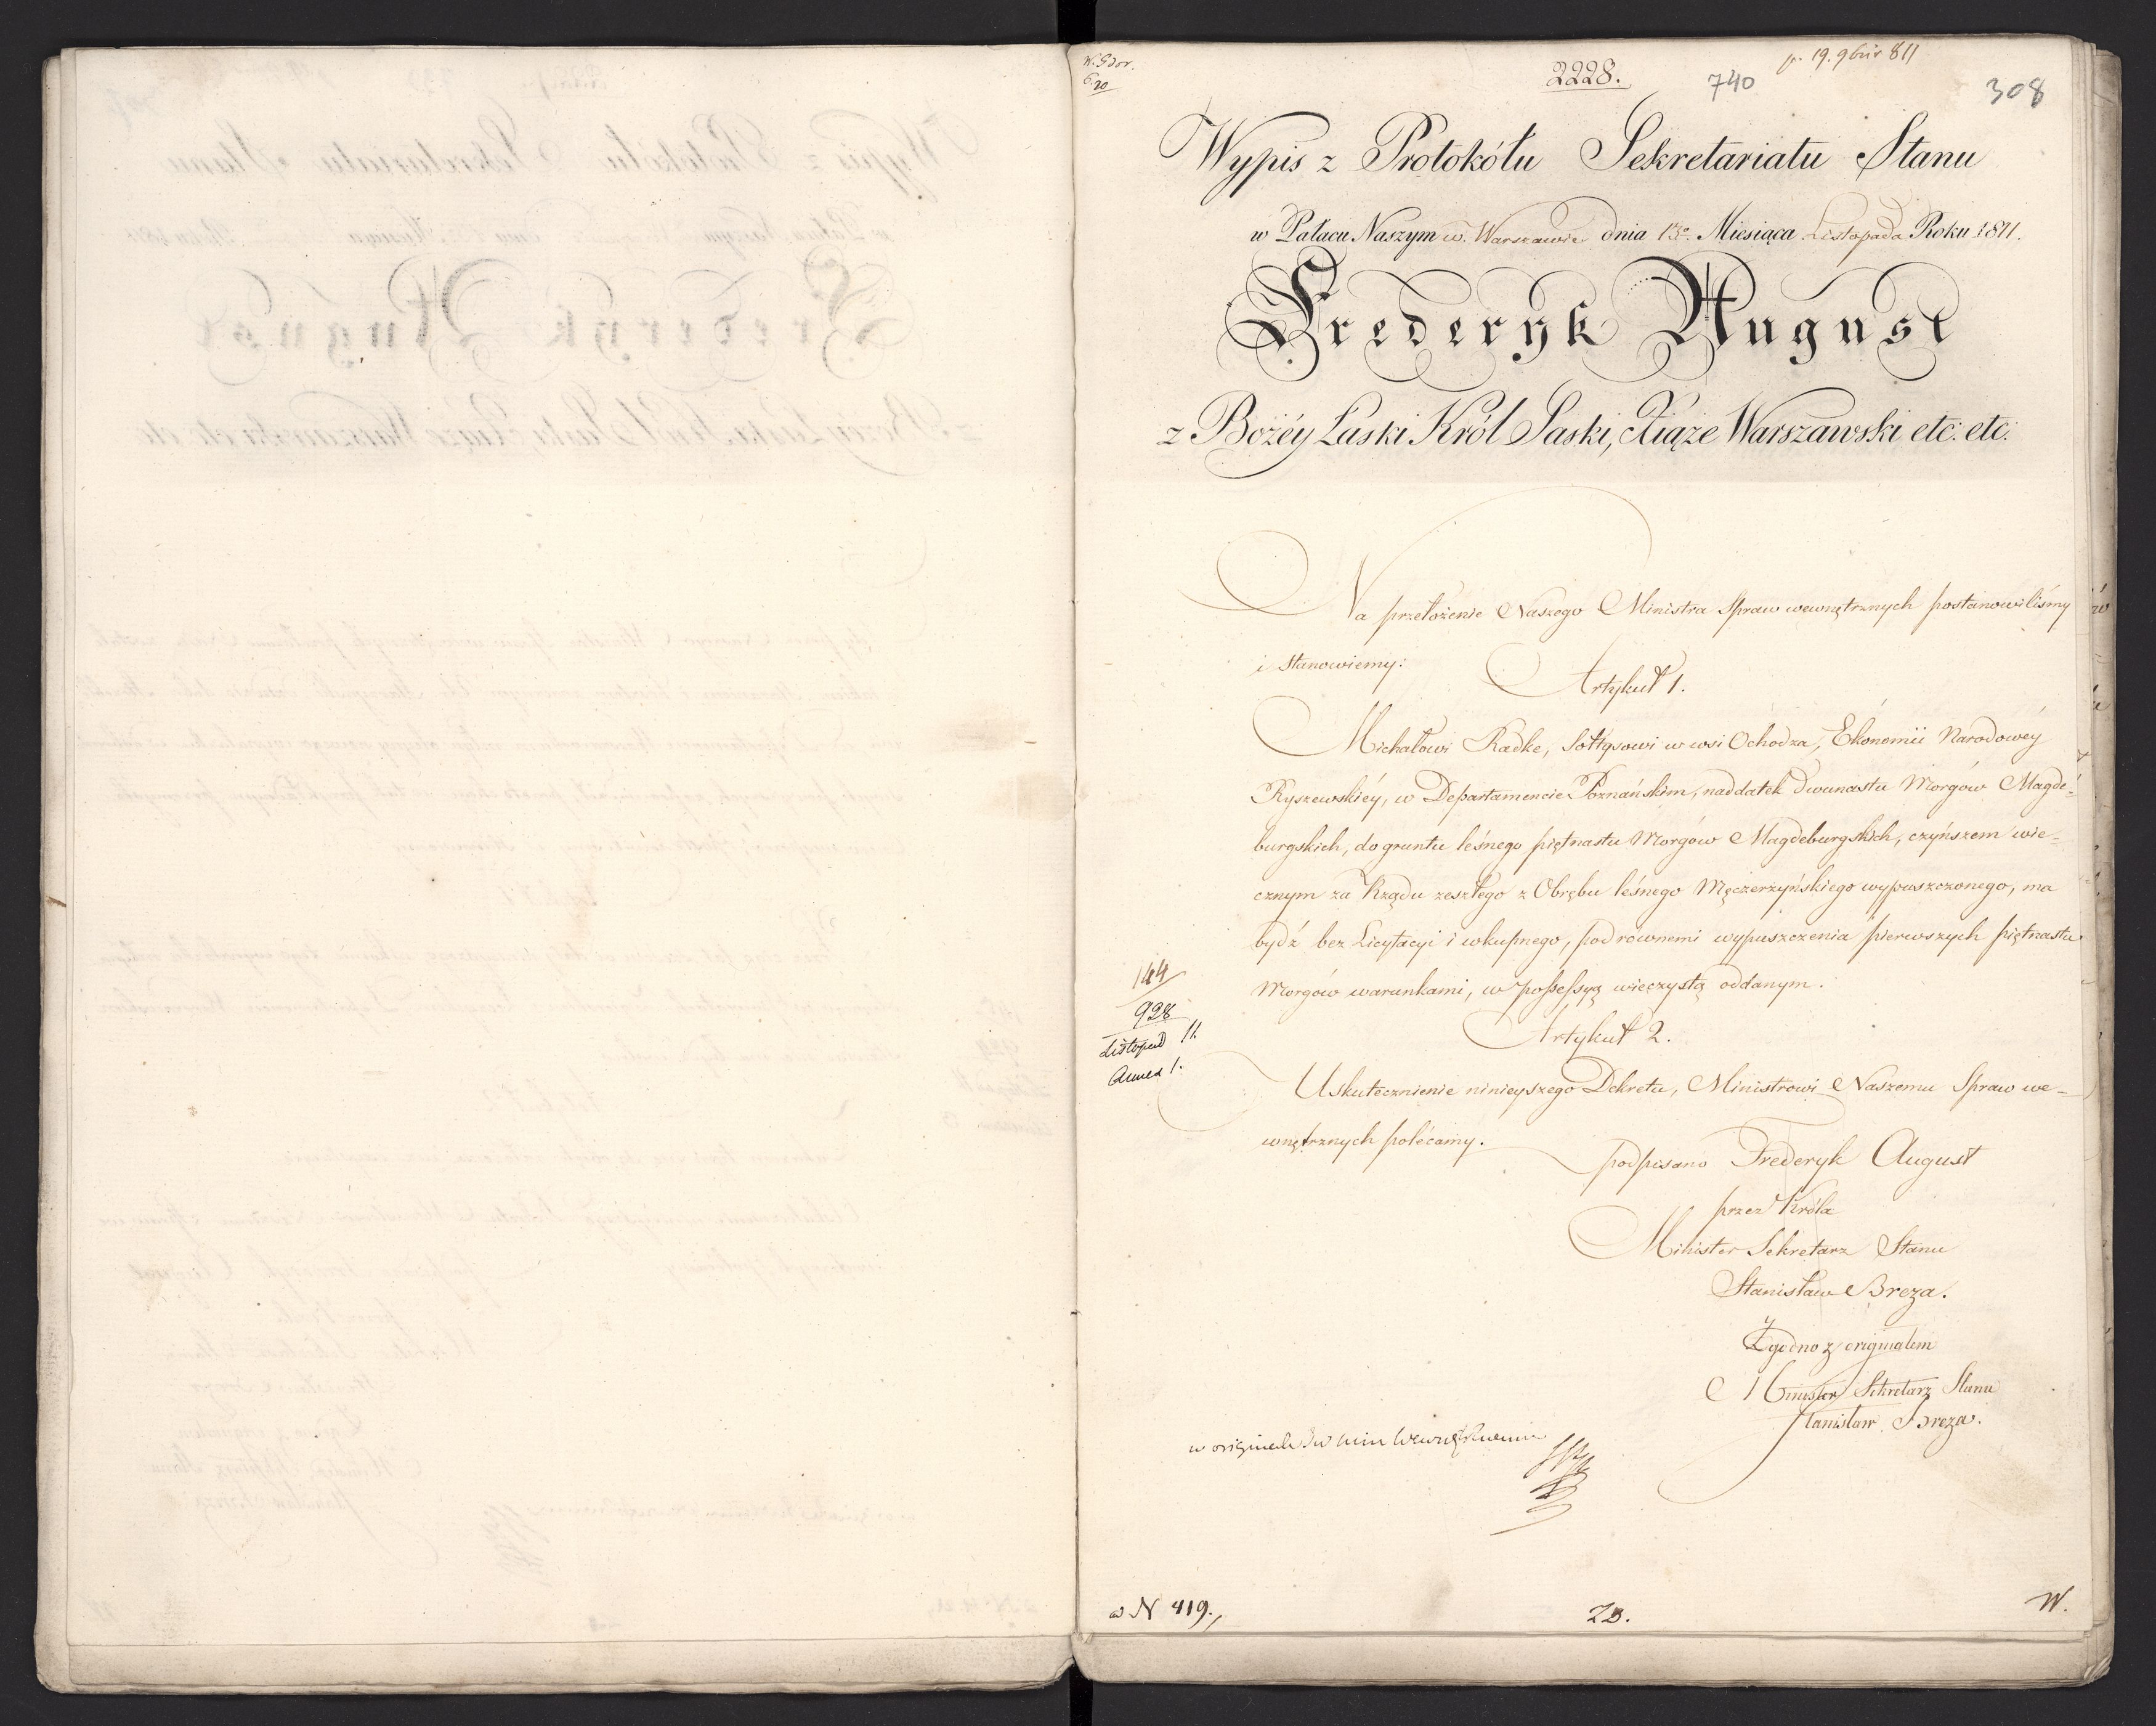 W. Gdor.
6.20
2228.
740
p. 19. 9bris 811
308
Wypis z Protokółu Sekretariatu Stanu
w Pałacu Naszym w Warszawie dnia 13º Miesiąca Listopada Roku 1811.
Frederyk August
z Bożéy Łaski Król Saski, Xiąże Warszawski etc: etc:
Na przełożenie Naszego Ministra Spraw wewnętrznych postanowiliśmy
i stanowiemy:
Artykuł 1.
Michałowi Radke, Sołtysowi w wsi Ochodza, Ekonomii Narodowéy
Ryszewskiéy, w Departamencie Poznańskim, naddatek dwunastu Morgów Magde=
burgskich, do gruntu leśnego piętnastu Morgów Magdeburgskich, czyńszem wie=
cznym za Rządu zeszłego z Obrębu leśnego Męczerzyńskiego wypuszczonego, ma
bydź bez Licytacyi i wkupnego, pod równemi wypuszczenia pierwszych piętnastu
Morgów warunkami, w possessyą wieczystą oddanym.
144
928
Listopad 11.
Annex 1.
Artykuł 2.
Uskutecznienie ninieyszego Dekretu, Ministrowi Naszemu Spraw we=
wnętrznych polécamy.
podpisano Frederyk August
przez Króla
Minister Sekretarz Stanu
Stanisław Breza.
Zgodno z originałem
Minister Sekretarz Stanu
Stanisław Breza.
w originale
ad N 419.,
ZB.
W.